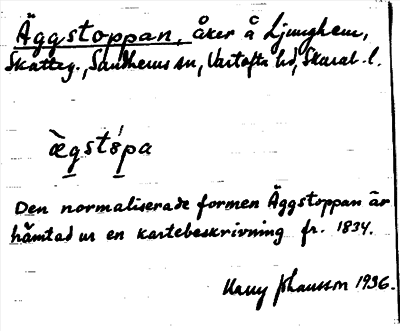 Äggstoppan, åker å Ljunghem,
Skatteg., Sandhems sn, Vartofta hd, Skarab. l.
ägstspa
Den normaliserade formen Äggstoppan är
hämtad ur en kartebeskrivning fr. 1834.
Harry Johansson 1936.